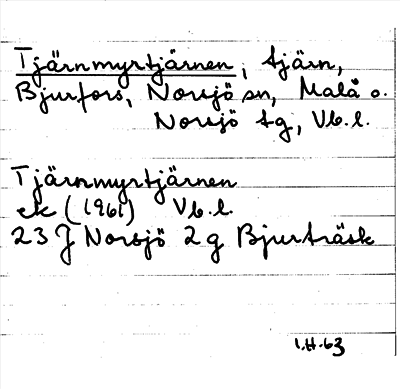 Tjärnmyrtjärnen, tjärn,
Bjurfors, Norsjö sn, Malå o.
Norsjö tg, Vb.l.
Tjärnmyrtjärnen
ek (1961) Vb.l.
23 J Norsjö 2 g Bjurträsk
1.H.63